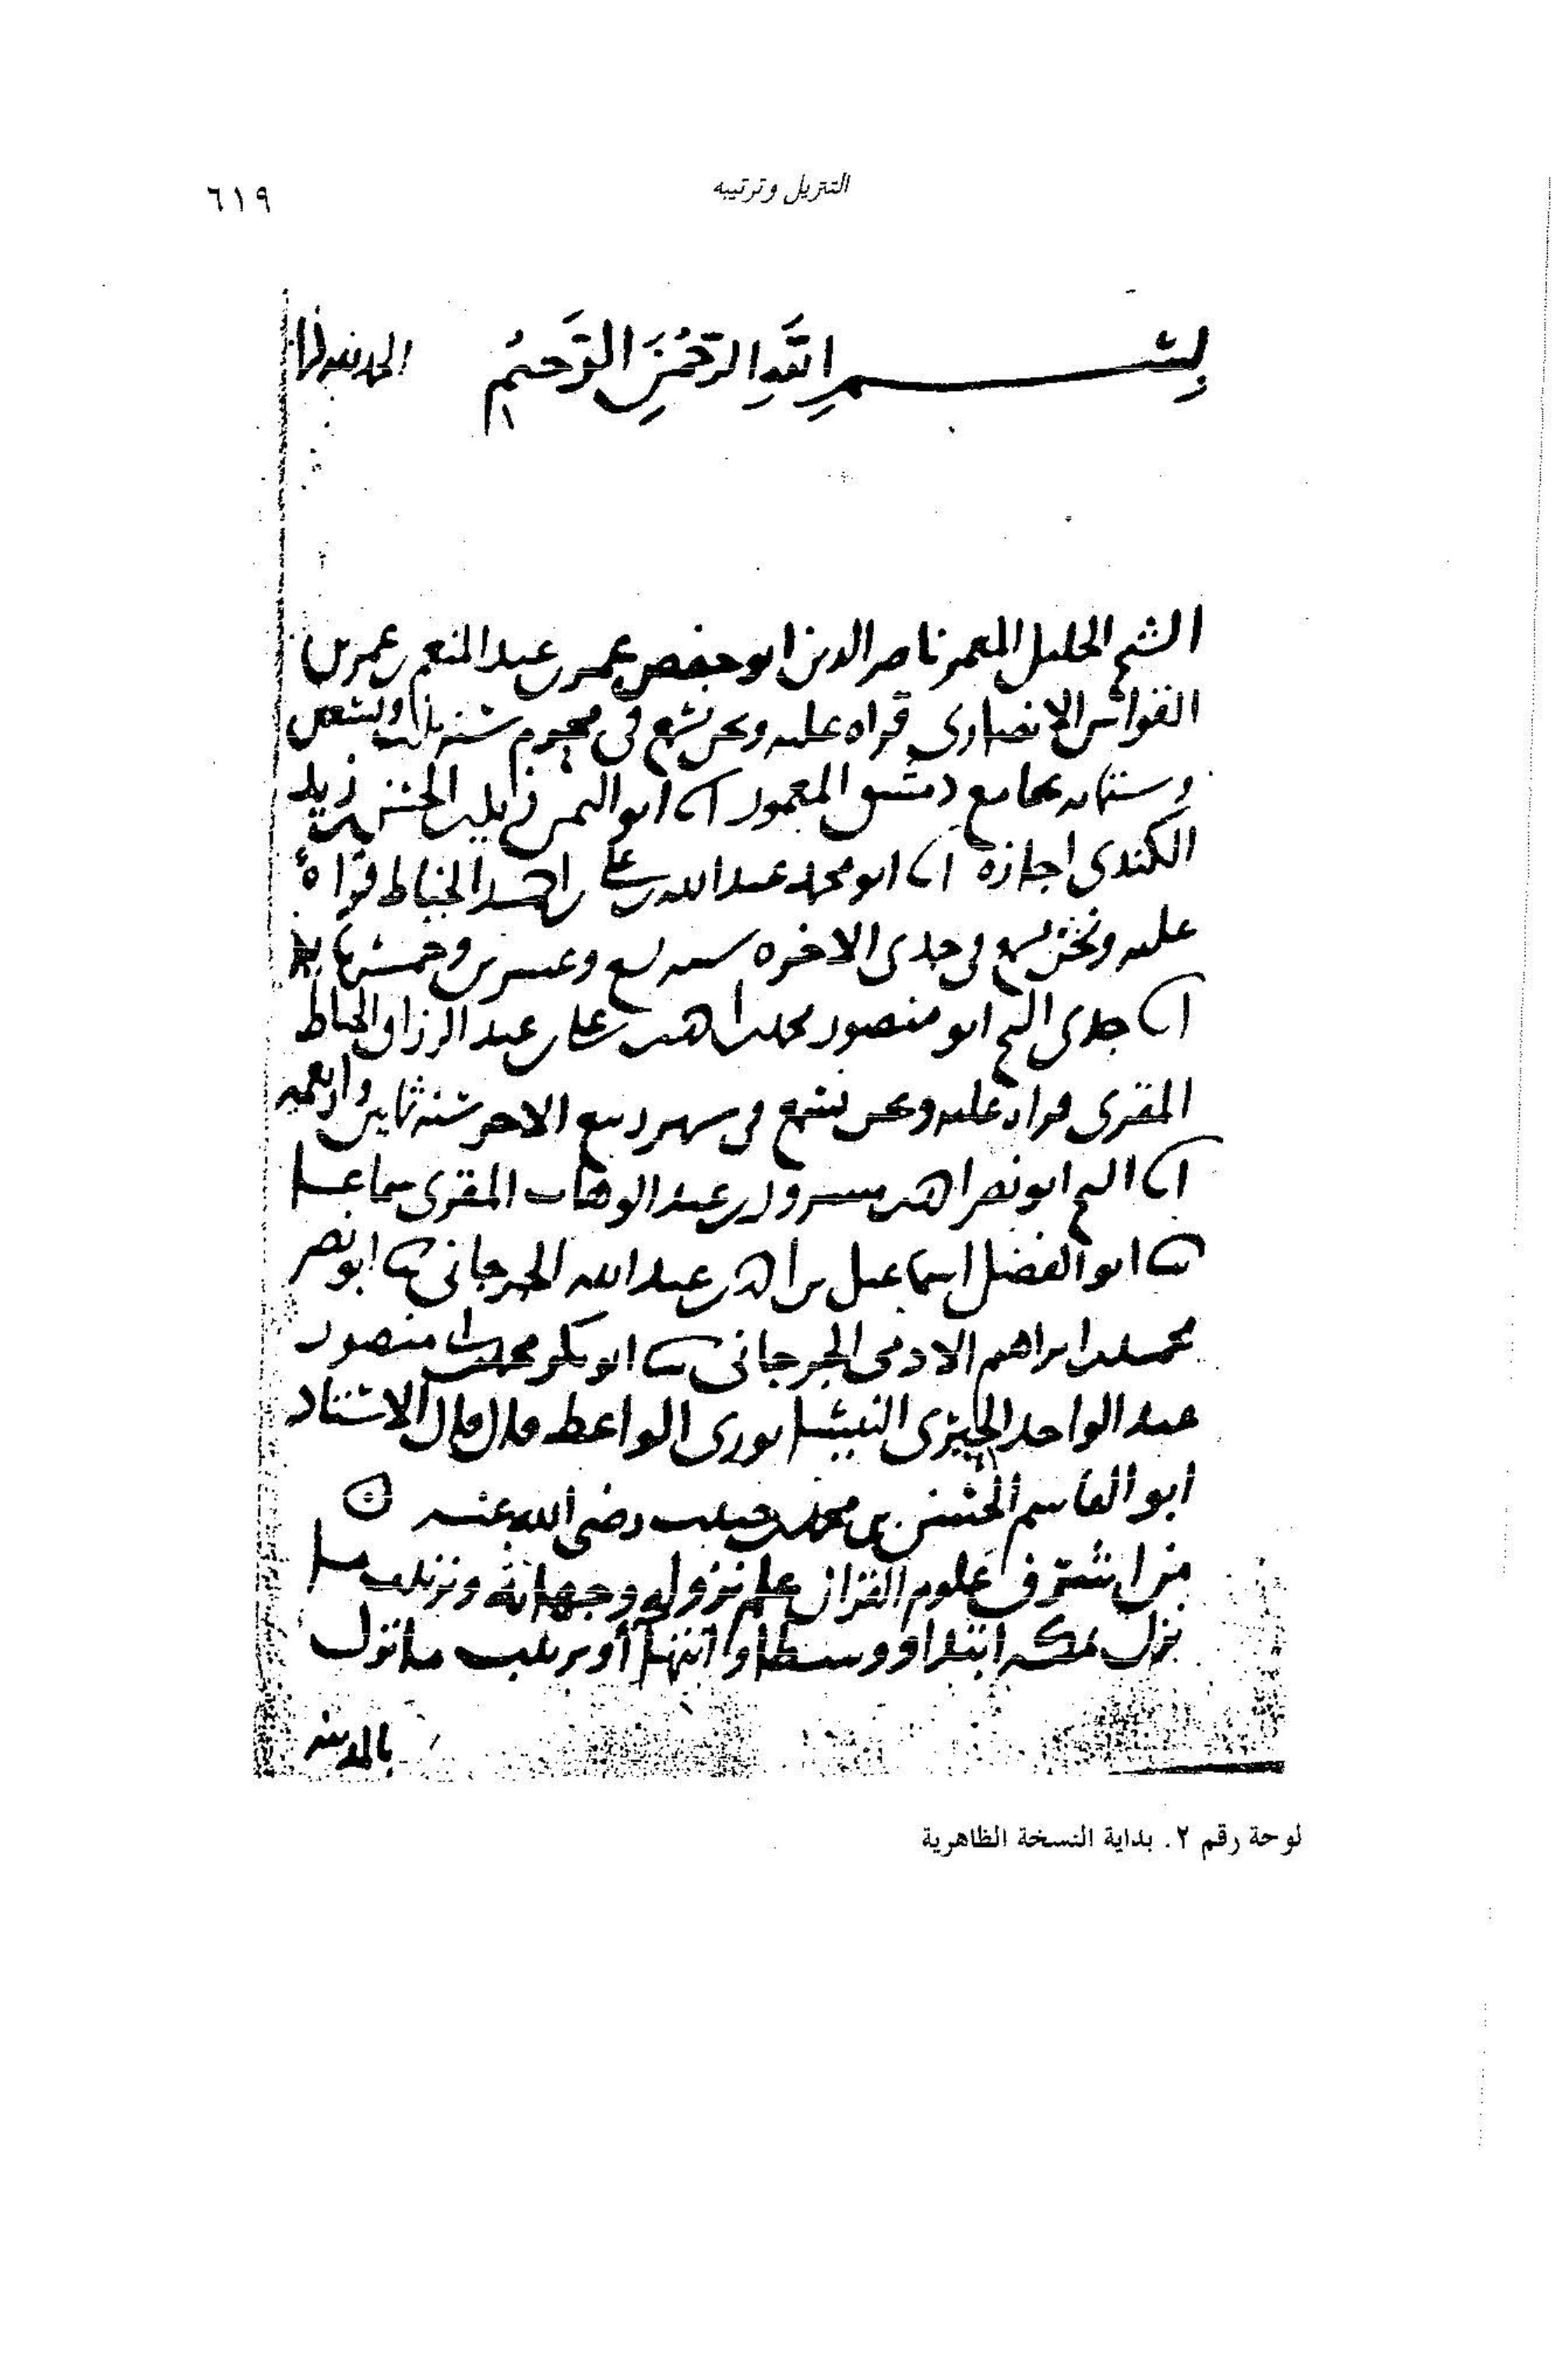 التتريل وترتيبه
٦١٩
بسم الله الرحمن الرحيم الحمد لله
الشيخ الجليل المعمر ناصر الدين ابو حفص عمر بن عبد المنعم بن عمر بن
القواس الانصارى قراه عليه ونحن نسمع فى محرم سنه ثلث وتسعين
وستمايه بجامع دمشق المعمور انا ابو اليمن زيد بن الحسن بن زيد
الكندى اجازة انا ابو محمد عبد الله بن على بن احمد الخياط قراة
عليه ونحن نسمع فى جمدى الاخره سنه وعشرين وخمسمايه
انا جدى الشيخ ابو منصور محمد بن احمد بن على بن عبد الرزاق الخياط
المقرى قراه عليه ونحن نسمع فى شهر ربيع الاخر سنه ثمانين واربعمايه
انا الشيخ ابو نصر احمد بن مسرور بن عبد الوهاب المقرى سماعا
ثنا ابو الفضل اسماعيل بن احمد بن عبد الله الجرجانى ثنا ابو نصر
محمد بن ابراهيم الادمى الجرجانى ثنا ابو بكر محمد بن منصور
عبد الواحد الحيرى النيسابورى الواعظ قال قال الاستاد
ابو القاسم الحسن بن محمد بن حبيب رضى الله عنه
من اشرف علوم القران علم نزوله وجهاته وترتيب ما
نزل بمكه ابتدا ووسطا وانتها وترتيب ما نزل
بالمدينه
لوحة رقم ٢. بداية النسخة الظاهرية